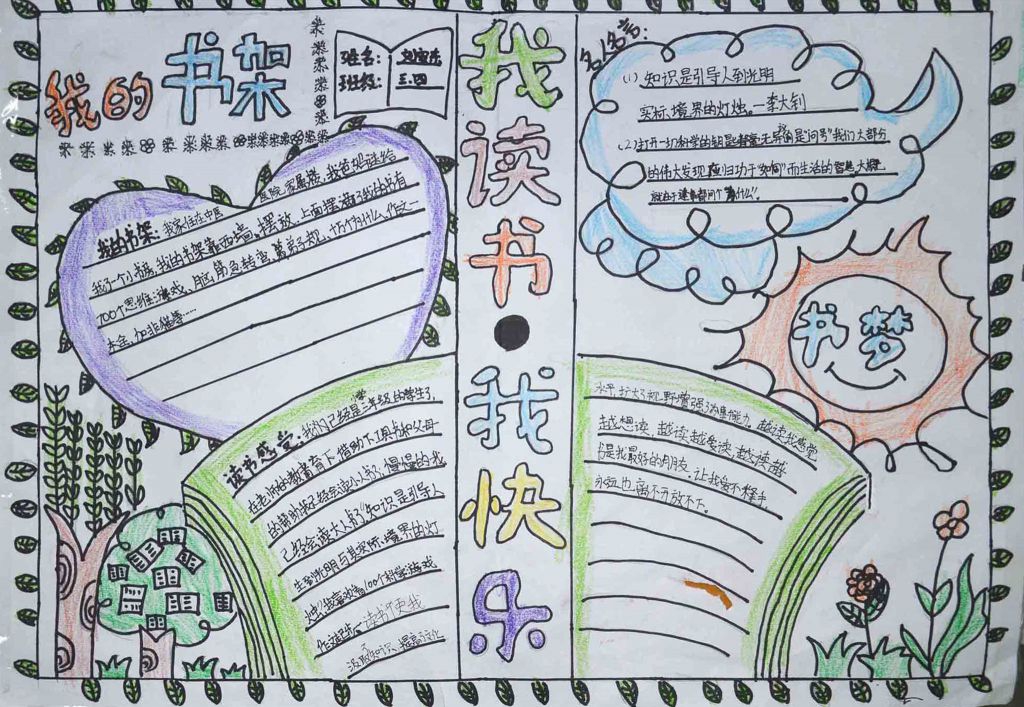 我的书架
姓名：
班级：三.四
我的书架：我家住在中医
医院家属楼，我爸妈送给
我了一个小书橱，我的书架靠西墙，摆放，上面摆满了我的书有
100个思维游戏、脑筋急转弯、十万个为什么、作文一
本全、加菲猫等……
我读书·我快乐
名人名言：
(1)知识是引导人到光明
实际境界的灯烛。—李大钊
(2)打开一切科学的钥匙都毫无异的是"问号"我们大部分
的伟大发现应归功于"如何"而生活的智慧大概
就在于逢事都问个"为什么"！
书梦
读书感觉：我们已经是三年级的学生了，
在老师的教育下，借助下
的帮助我已经会读小人书，慢慢的我
已经会读大人书"知识是引导人
生到光明与真实际境界的灯
烛"我喜欢看100个科学游戏
作文起步。读书使我
汲取知识、提高
水平，扩大视野增强了
越想读，越读越爱读，越读越
书是我最好的朋友，让我爱不释手，
永远也离不开放不下。